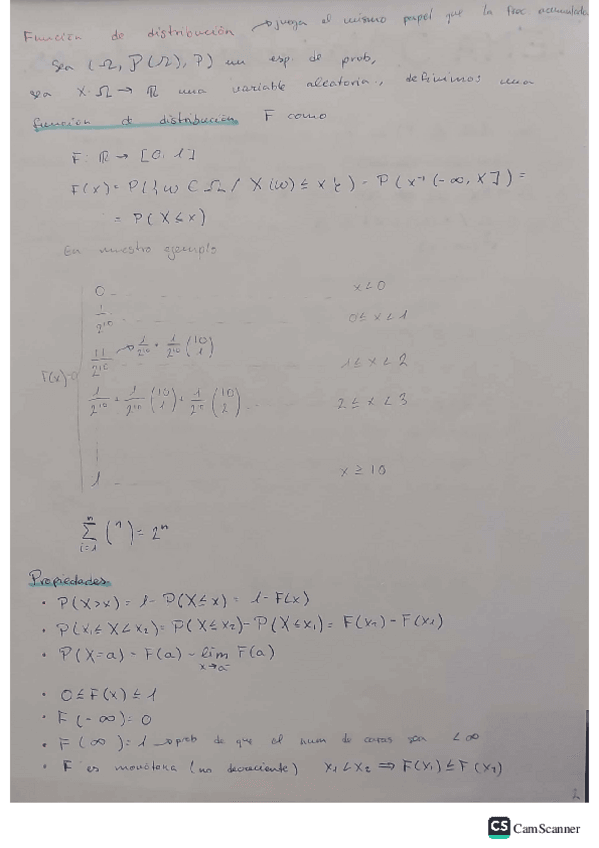 Función de distribución → juega el mismo papel que la frec acumulada
Sea (Ω, P(Ω), P) un esp. de prob,
sea X: Ω → ℝ una variable aleatoria, definimos una
función de distribución F como
F: ℝ → [0, 1]
F(x) = P({ω ∈ Ω / X(ω) ≤ x}) = P(x⁻¹(-∞, x]) =
= P(X ≤ x)
En nuestro ejemplo
0 x < 0
1/2¹⁰ 0 ≤ x < 1
11/2¹⁰ → 1/2¹⁰ + 1/2¹⁰ (10 1) 1 ≤ x < 2
F(x) =
1/2¹⁰ + 1/2¹⁰ (10 1) + 1/2¹⁰ (10 2) ... 2 ≤ x < 3
1 x ≥ 10
∑ i=1 n (n) = 2ⁿ
Propiedades
• P(X>x) = 1 - P(X≤x) = 1 - F(x)
• P(x₁ ≤ X < x₂) = P(X ≤ x₂) - P(X ≤ x₁) = F(x₂) - F(x₁)
• P(X=a) = F(a) - lim x→a⁻ F(a)
• 0 ≤ F(x) ≤ 1
• F(-∞) = 0
• F(∞) = 1 → prob de que el num de caras sea < ∞
• F es monótona (no decreciente) x₁ < x₂ ⟹ F(x₁) ≤ F(x₂)
2
CS CamScanner